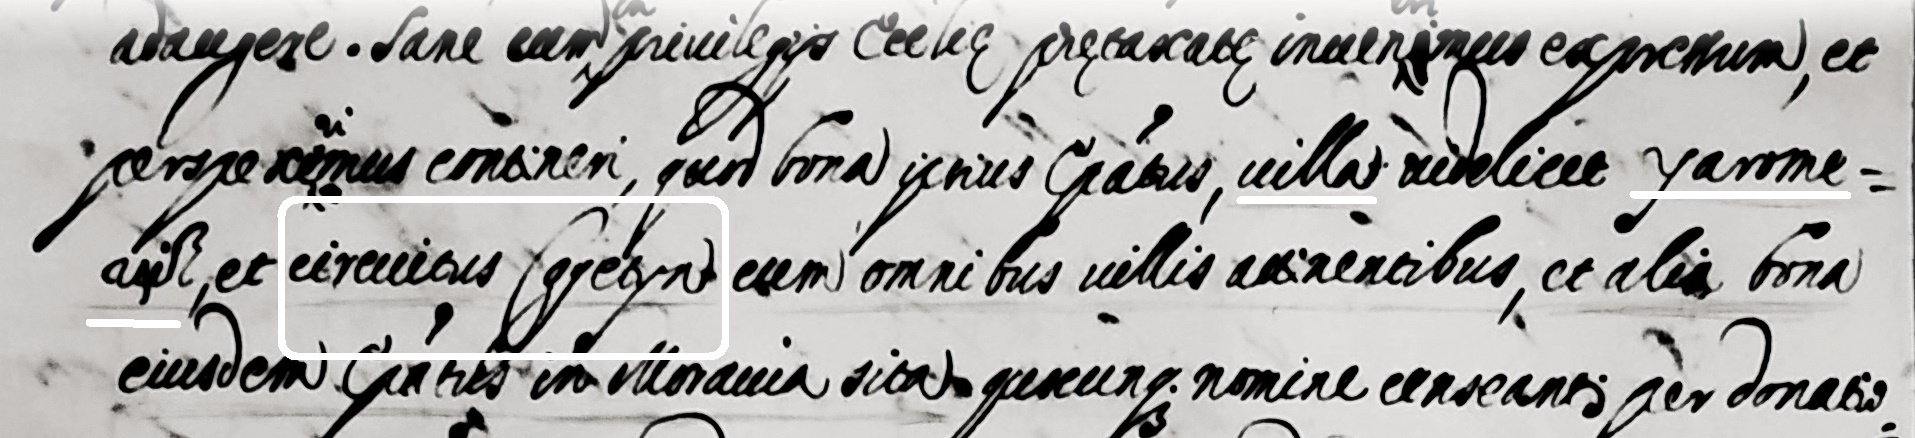 adaugere. Sane cum priuilegijs Ecclię pretaxatę inuenimus expressum, et
perspeximus contineri, quod bona ipsius, uilla uidelicet Yarome=
et circuitus Gretyn cum omnibus uillis attinentibus, et alia bona
eiusdem in Morauia sita quocunq. nomine censeants per donatio